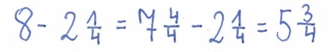 8 - 2 1/4 = 7 4/4 - 2 1/4 = 5 3/4